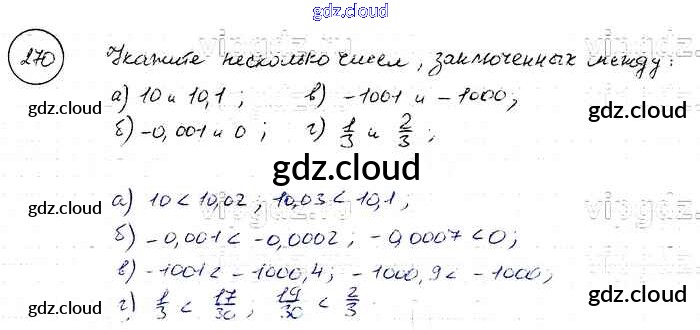 gdz.cloud
270 Укажите несколько чисел, заключенных между:
а) 10 и 10,1; в) -1001 и -1000;
gdz.cloud gdz.cloud
б) -0,001 и 0; г) 1/3 и 2/3;
gdz.cloud
а) 10 < 10,02; 10,03 < 10,1;
gdz.cloud gdz.cloud
б) -0,001 < -0,0002; -0,0007 < 0;
в) -1001 < -1000,4; -1000,9 < -1000;
г) 1/3 < 17/30; 19/30 < 2/3
gdz.cloud gdz.cloud